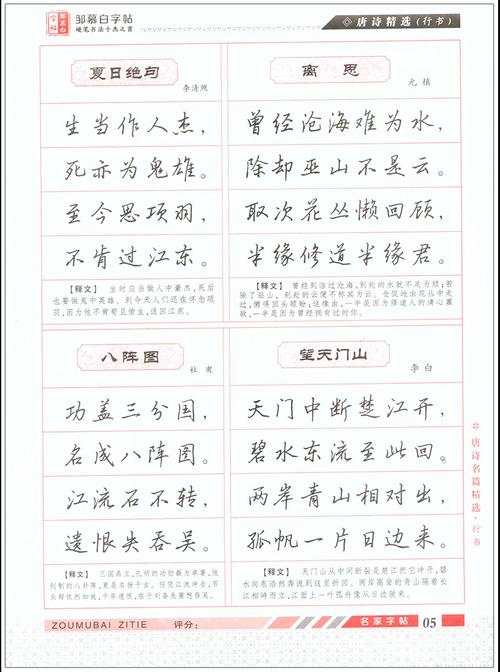 邹慕白字帖
硬笔书法十杰之首
唐诗精选（行书）
夏日绝句
李清照
生当作人杰，
死亦为鬼雄。
至今思项羽，
不肯过江东。
【释文】 生时应当做人中豪杰，死后
也要做鬼中英雄。到今天人们还在怀念项
羽，因为他不肯苟且偷生，退回江东。
离思
元稹
曾经沧海难为水，
除却巫山不是云。
取次花丛懒回顾，
半缘修道半缘君。
【释文】 曾经到临过沧海，别处的水就不足为顾；若
除了巫山，别处的云便不称其为云。仓促地由花丛中走
过，懒得回头顾盼；这缘由，一半是因为修道人的清心寡
欲，一半是因为曾经拥有过的你。
八阵图
杜甫
功盖三分国，
名成八阵图。
江流石不转，
遗恨失吞吴。
【释文】 三国鼎立，孔明的功勋最为卓著，他
创制的八卦阵，更是名扬千古。任凭江流冲击，石
头却依然如故，千年遗恨，在于刘备失策想吞吴。
望天门山
李白
天门中断楚江开，
碧水东流至此回。
两岸青山相对出，
孤帆一片日边来。
【释文】 天门山从中间断裂是楚江把它冲开，碧
水向东浩然奔流到这里折回。两岸高耸的青山隔着长
江相峙而立，江面上一叶孤舟像从日边驶来。
唐诗名篇精选·行书
ZOUMUBAI ZITIE
评分：
名家字帖
05